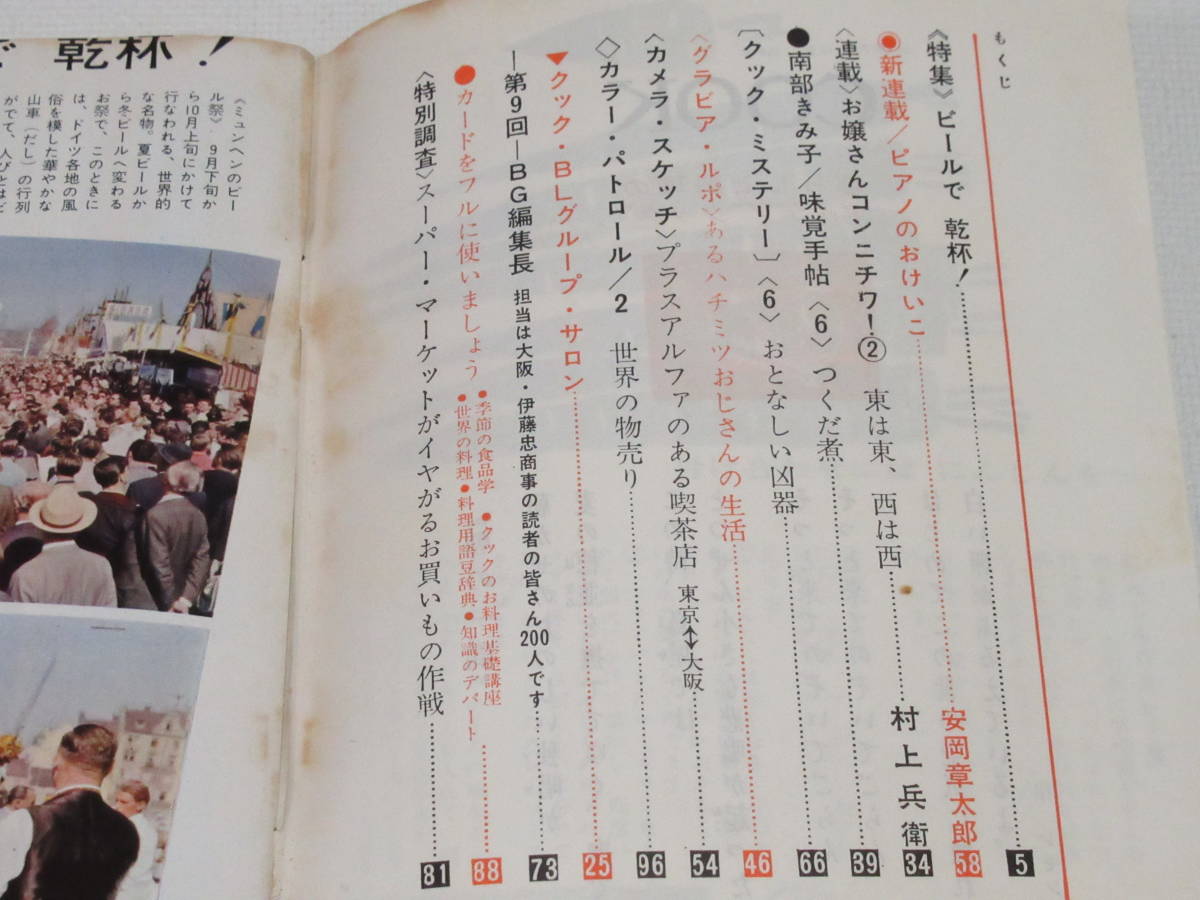 もくじ
《特集》ビールで 乾杯!……5
◉新連載/ピアノのおけいこ……安岡章太郎 58
〈連載〉お嬢さんコンニチワ!② 東は東、西は西……村上兵衛 34
●南部きみ子/味覚手帖〈6〉つくだ煮……39
〔クック・ミステリー〕〈6〉おとなしい凶器……66
〈グラビア・ルポ〉あるハチミツおじさんの生活……46
〈カメラ・スケッチ〉プラスアルファのある喫茶店 東京↔大阪……54
◇カラー・パトロール/2 世界の物売り……96
▼クック・BLグループ・サロン……25
—第9回—BG編集長 担当は大阪・伊藤忠商事の読者の皆さん200人です……73
●カードをフルに使いましょう ●季節の食品学 ●クックのお料理基礎講座
●世界の料理●料理用語豆辞典●知識のデパート……88
〈特別調査〉スーパー・マーケットがイヤがるお買いもの作戦……81
で 乾杯!
《ミュンヘンのビー
ル祭》 9月下旬か
ら10月上旬にかけて
行なわれる、世界的
な名物。夏ビールか
ら冬ビールへ変わる
お祭で、このときに
は、ドイツ各地の風
俗を模した華やかな
山車(だし)の行列
がでて、人びとは